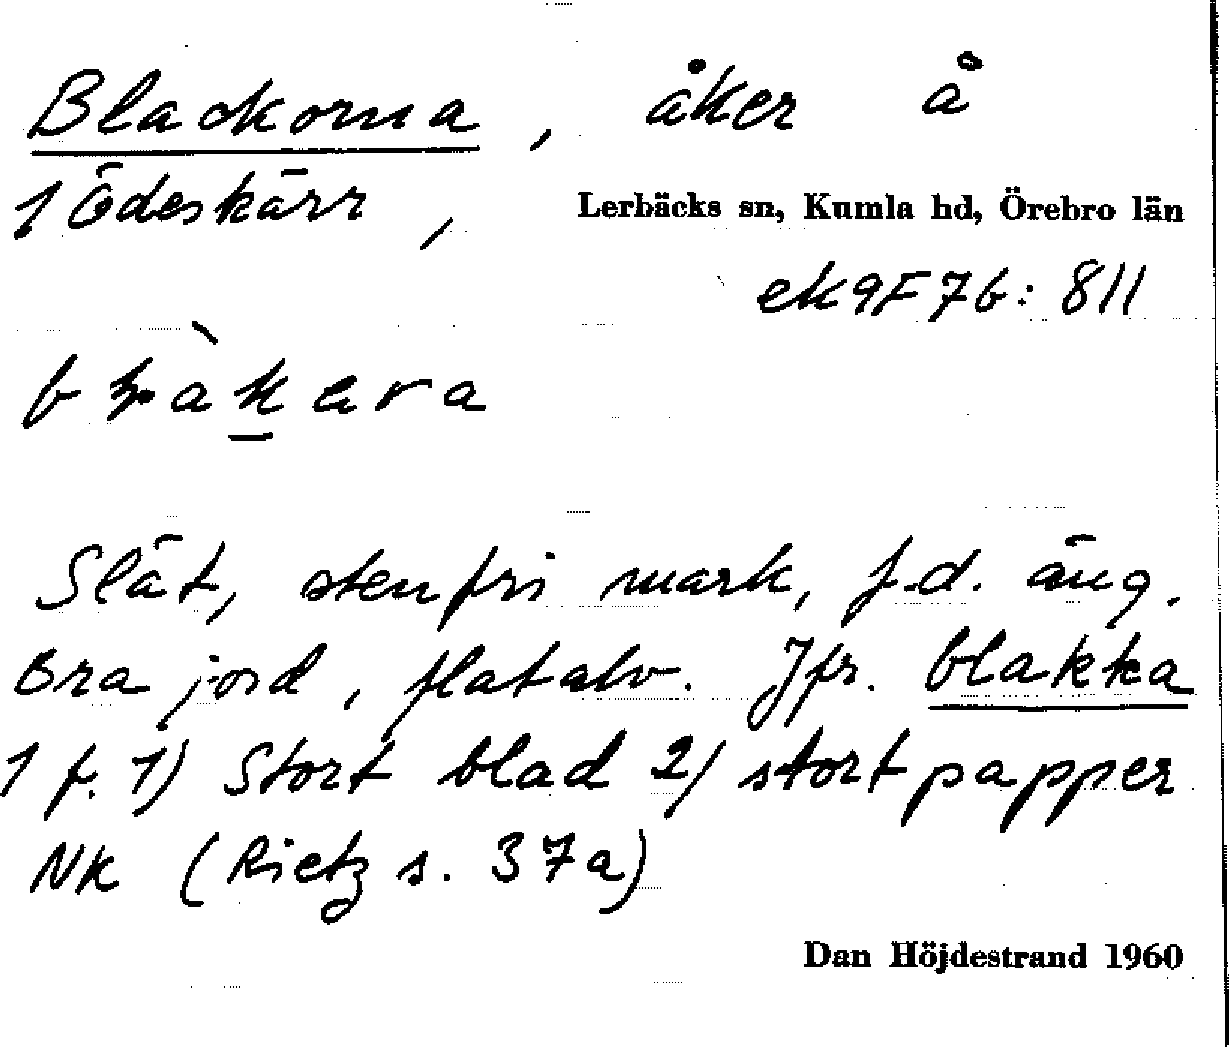 Blackorna, åker å
1 Ödeskärr, Lerbäcks sn, Kumla hd, Örebro län
ek 9F7b: 811
Slät, stenfri mark, f.d. äng.
Bra jord, flatalv. Jfr. blakka
1 f. 1) Stort blad 2) stort papper
Nk (Rietz s. 37a)
Dan Höjdestrand 1960